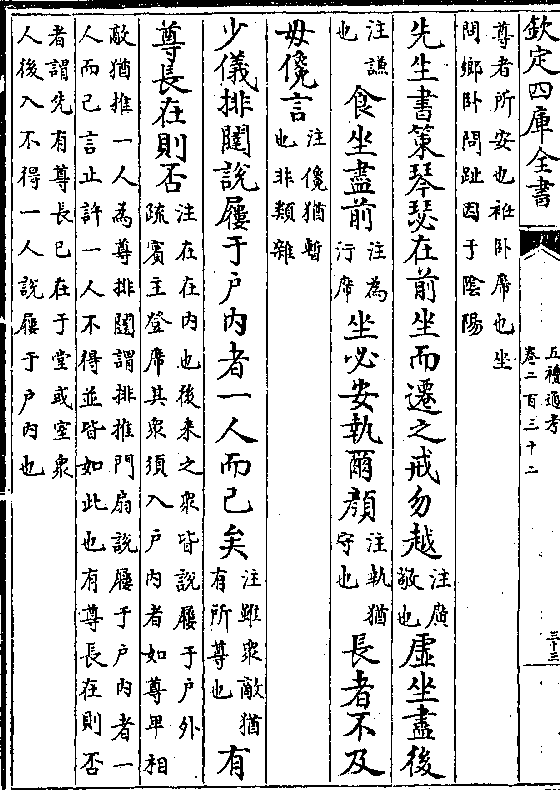 欽定四庫全書
五禮通考
卷二百三十二
三十三
尊者所安也衽卧席也坐
問鄉卧問趾因于陰陽
先生書策琴瑟在前坐而遷之戒勿越
注廣
敬也
虛坐盡後
注謙
也
食坐盡前
注為
汙席
坐必安執爾顔
注執猶
守也
長者不及
毋儳言
注儳猶暫
也非類雜
少儀排闔說屨于户内者一人而已矣
注雖衆敵猶
有所尊也
有
尊長在則否
注在在内也後來之衆皆說屨于户外
疏賓主登席其衆須入户内者如尊卑相
敵猶推一人為尊排闔謂排推門扇說屨于户内者一
人而已言止許一人不得並皆如此也有尊長在則否
者謂先有尊長已在于堂或室衆
人後入不得一人說屨于户内也